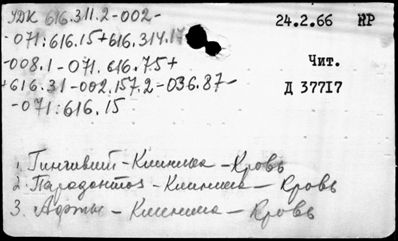 УДК 616.311.2-002-
-071:616.15+616.314.17
-008.1-071.616.75+
+616.31-002.157.2-036.87-
-071:616.15
24.2.66 НР
Чит.
Д 37717
1. Гингивит - Клиника - Кровь
2. Пародонтоз - Клиника - Кровь
3. Афты - Клиника - Кровь